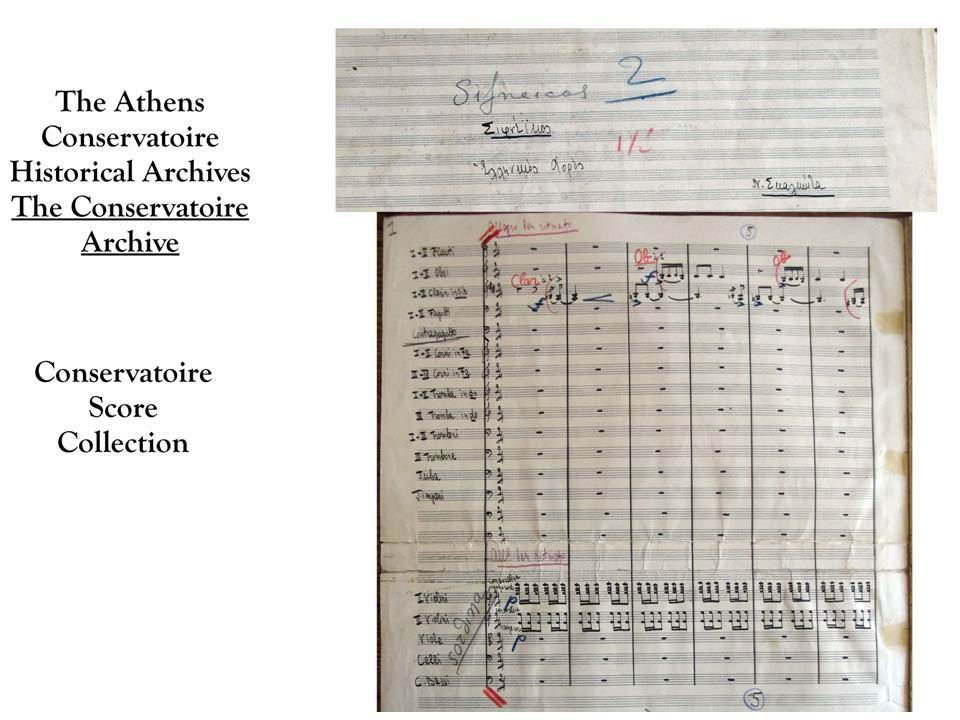 The Athens
Conservatoire
Historical Archives
The Conservatoire
Archive
Conservatoire
Score
Collection
2
Σιφνέϊκος
1/2
Ἑλληνικός Χορός
Ν. Σκαλκώτα
1
Allegro ben ritmato
5
I-II Flauti
I-II Oboi
Ob.
Ob.
I-II Clarini in sib
Clar.
a2
I-II Fagotti
Contrafagotto
I-II Corni in Fa
III-IV Corni in Fa
I-II Tromba in do
III Tromba in do
I-II Tromboni
III Trombone
Tuba
Timpani
All° ben ritmato
I Violini
II Violini
Viole
Celli
C. Bassi
sordino
p
p
5